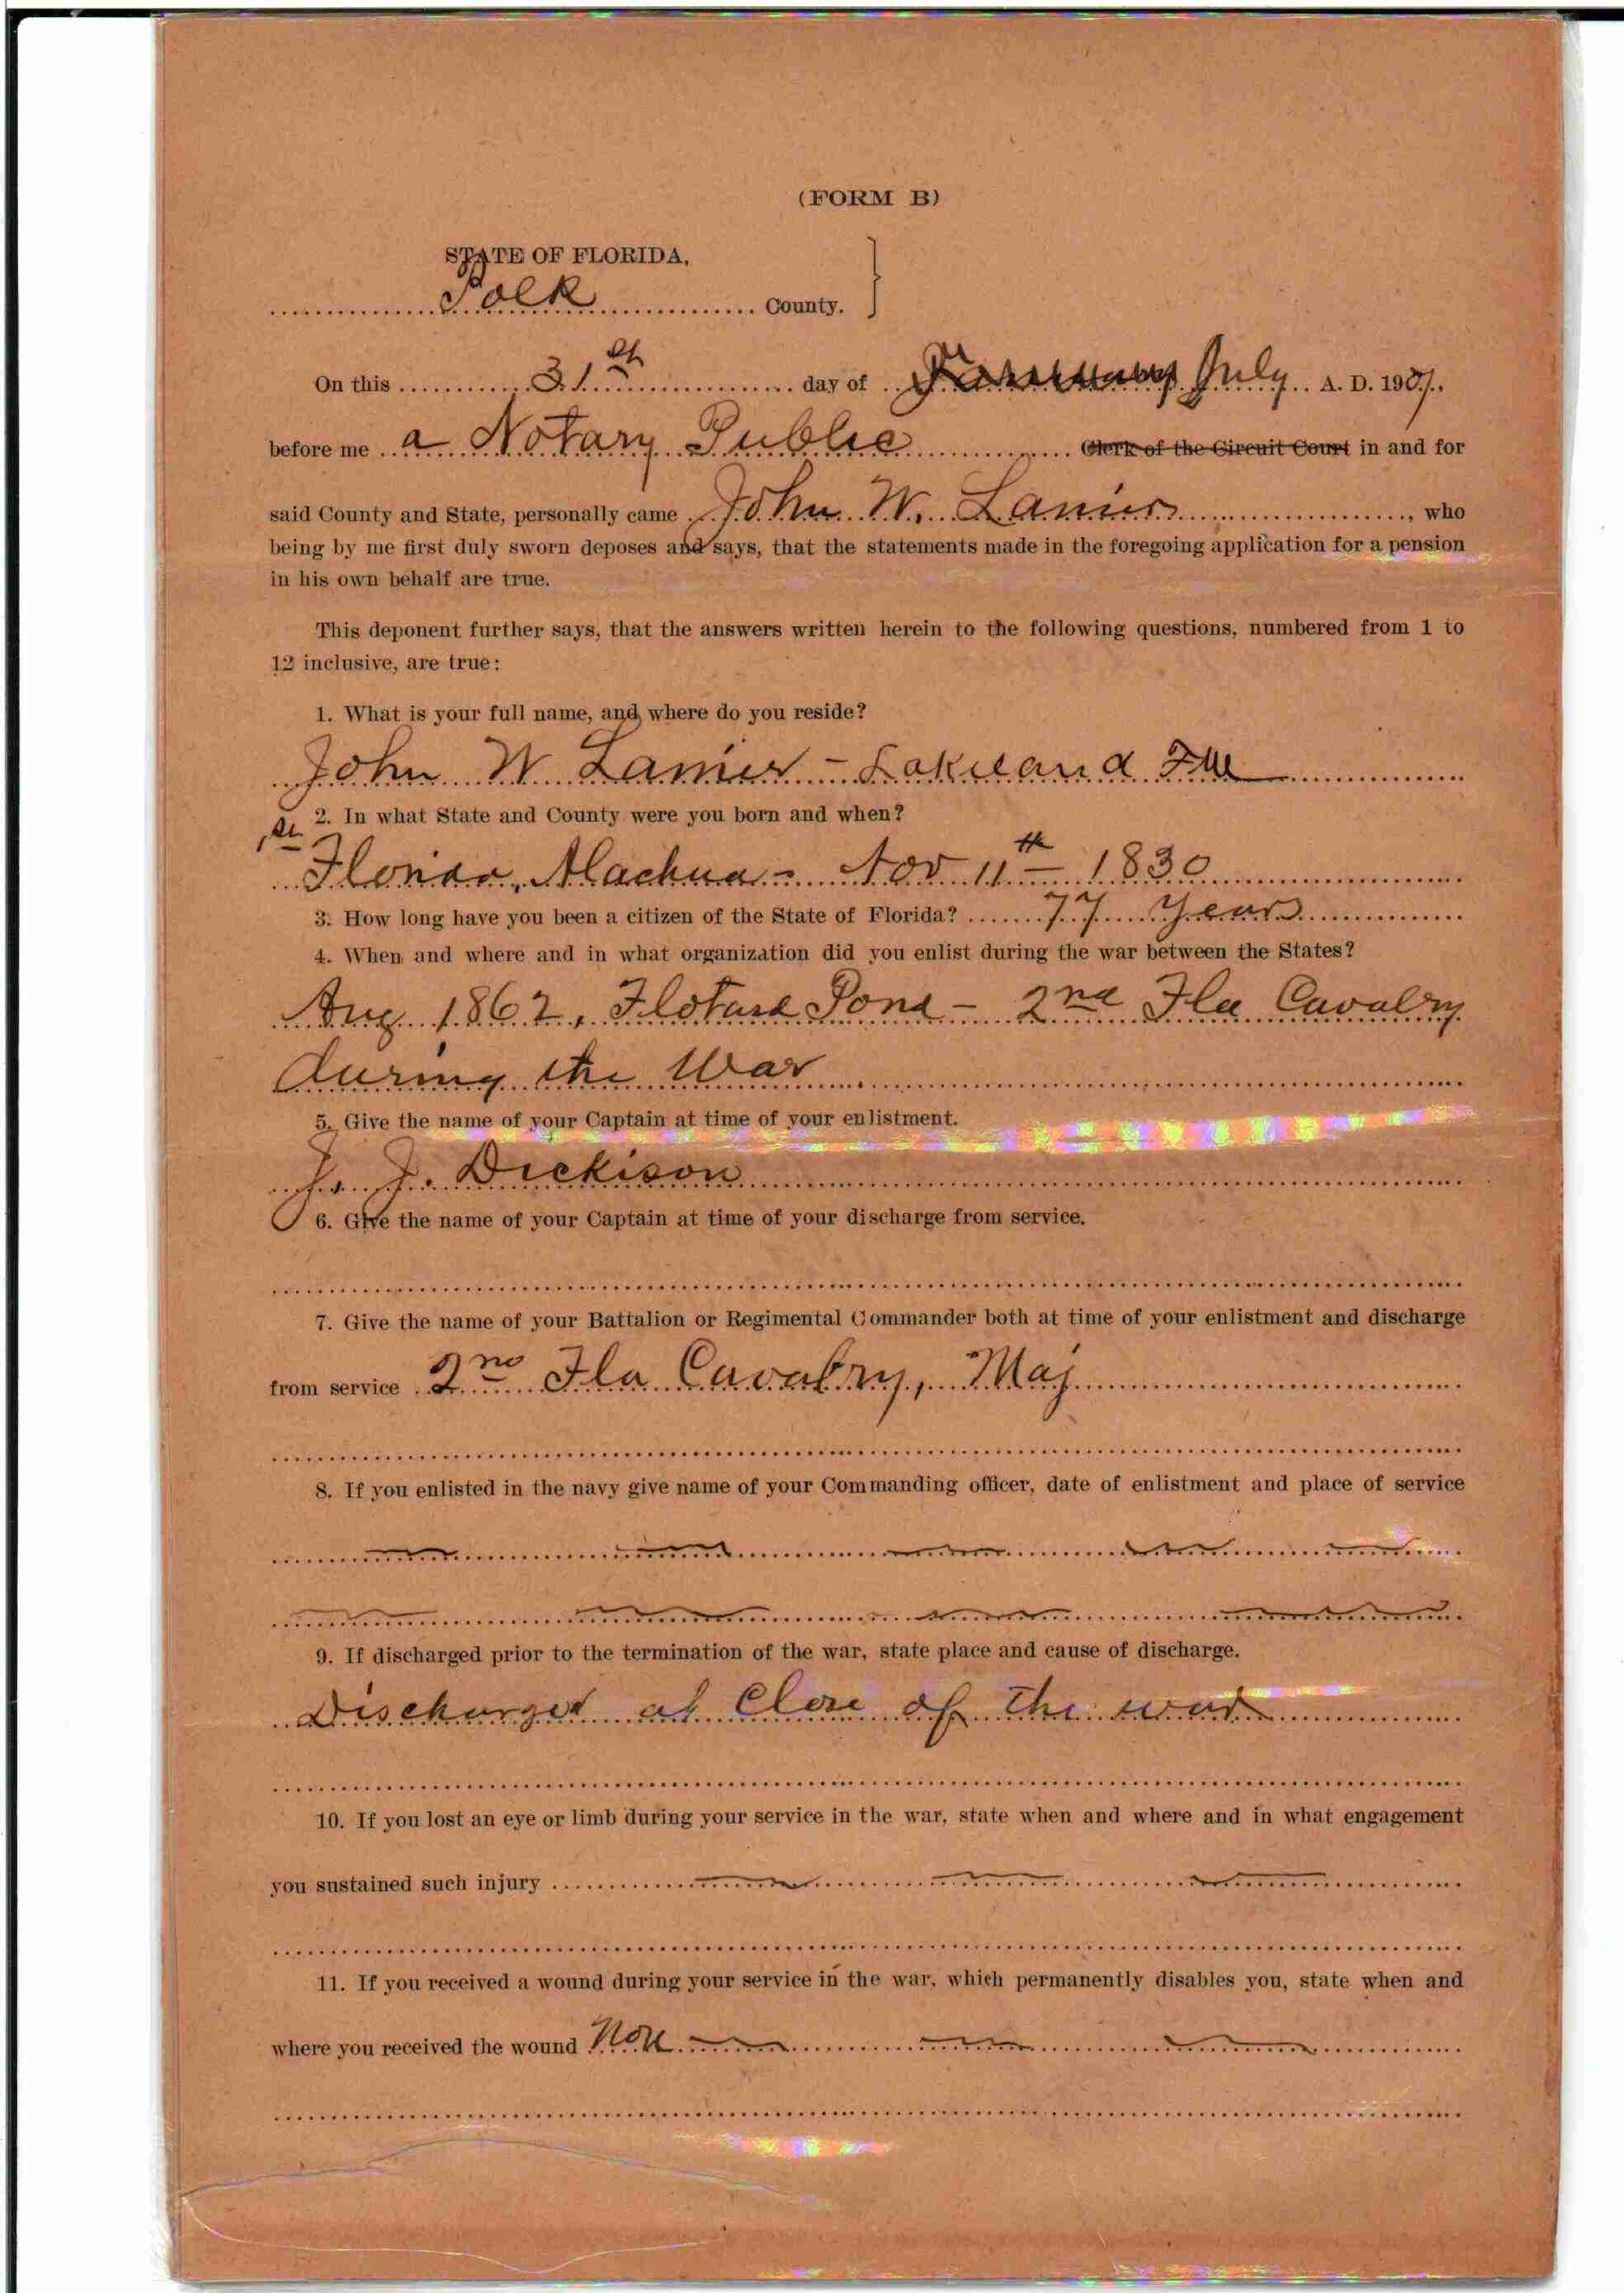 (FORM B)
STATE OF FLORIDA,
Polk County.
On this 31st day of January July A. D. 1907,
before me a Notary Public Clerk of the Circuit Court in and for
said County and State, personally came John W. Lanier, who
being by me first duly sworn deposes and says, that the statements made in the foregoing application for a pension
in his own behalf are true.
This deponent further says, that the answers written herein to the following questions, numbered from 1 to
12 inclusive, are true:
1. What is your full name, and where do you reside?
John W Lanier - Lakeland Fla
2. In what State and County were you born and when?
Florida, Alachua - Nov 11th 1830
3. How long have you been a citizen of the State of Florida? 77 Years
4. When and where and in what organization did you enlist during the war between the States?
Aug 1862, Flotard Pond - 2nd Fla Cavalry
during the War
5. Give the name of your Captain at time of your enlistment.
J. J. Dickison
6. Give the name of your Captain at time of your discharge from service.
7. Give the name of your Battalion or Regimental Commander both at time of your enlistment and discharge
from service 2nd Fla Cavalry, Maj
8. If you enlisted in the navy give name of your Commanding officer, date of enlistment and place of service
9. If discharged prior to the termination of the war, state place and cause of discharge.
Discharged at Close of the war
10. If you lost an eye or limb during your service in the war, state when and where and in what engagement
you sustained such injury
11. If you received a wound during your service in the war, which permanently disables you, state when and
where you received the wound Non